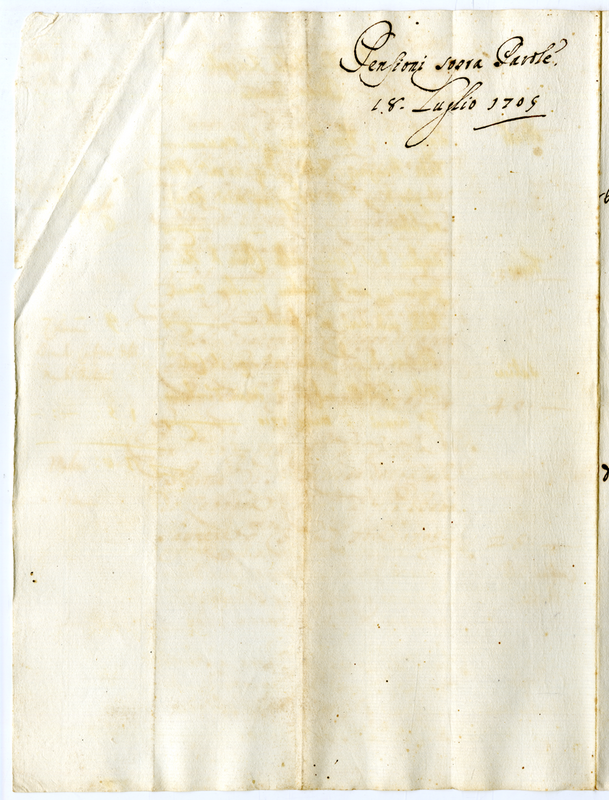 Pensioni sopra Parole.
18. Luglio 1705